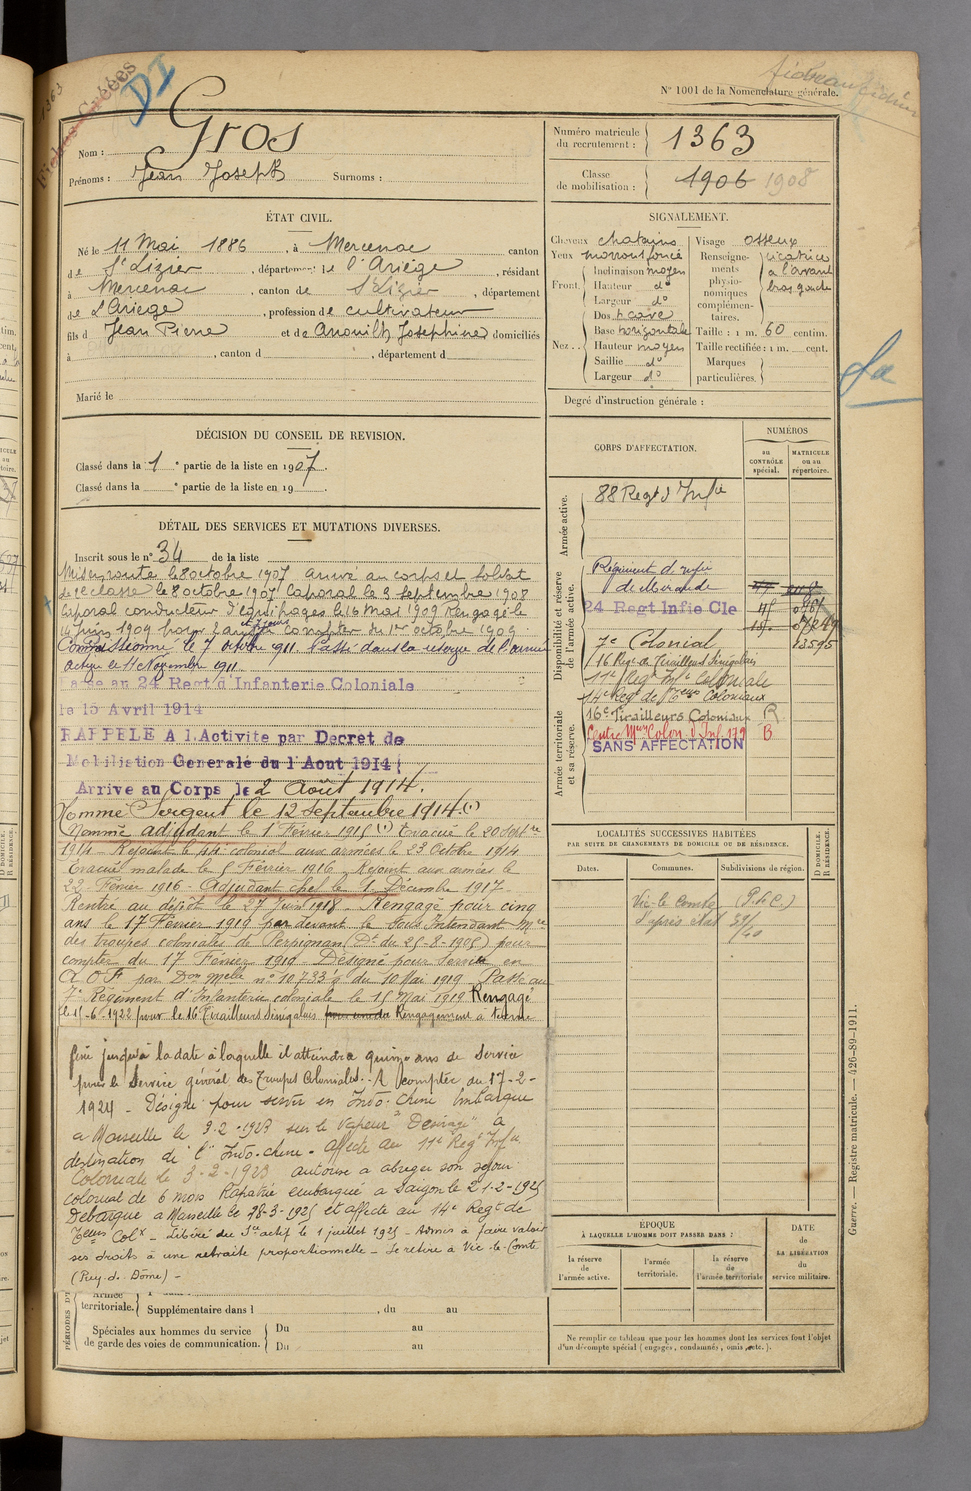 Fiches Créées
DI
1363
N° 1001 de la Nomenclature générale.
Nom : Gros
Prénoms : Jean Joseph Surnoms :
ÉTAT CIVIL.
Né le 11 Mai 1886, à Mercenac canton
de St Lizier, département de l'Ariège, résidant
à Mercenac, canton de St Lizier, département
de l'Ariège, profession de cultivateur
fils d Jean Pierre et de Anouilh Josephine domiciliés
à , canton d , département d
Marié le
DÉCISION DU CONSEIL DE REVISION.
Classé dans la 1e partie de la liste en 1907.
Classé dans la e partie de la liste en 19 .
DÉTAIL DES SERVICES ET MUTATIONS DIVERSES.
Inscrit sous le n° 34 de la liste
Mis en route le 8 octobre 1907 arrivé au corps et soldat
de 2e classe le 8 octobre 1907 Caporal le 3 septembre 1908
Caporal conducteur d'équipages le 16 mai 1909 Rengagé le
14 Juin 1909 pour 2 ans et 7 jours à compter du 1er octobre 1909.
Commissionné le 7 octobre 1911. Passé dans la réserve de l'armée
active le 11 Novembre 1911.
Passe au 24 Regt d'Infanterie Coloniale
le 15 Avril 1914
RAPPELE A l.Activite par Decret de
Mobilistion Generale du 1 Aout 1914
Arrive au Corps le 2 Août 1914.
Nommé Sergent le 12 septembre 1914.(1)
Nommé adjudant le 1er Février 1915 (1) Evacué le 20 Septbre
1914 - Rejoint le 44 colonial aux armées le 23 Octobre 1914
Evacué malade le 5 Février 1916 Rejoint aux armées le
22 Février 1916 - Adjudant chef le 1er Décembre 1917
Rentré au dépôt le 27 Juin 1918. Rengagé pour cinq
ans le 17 Février 1919 par devant le Sous Intendant Mre
des troupes coloniales de Perpignan (Don du 25-8-1905) pour
compter du 17 Février 1919 Désigné pour servir en
A O F par Don Melle n° 10733/4 du 10 Mai 1919 Passé au
7e Régiment d'Infanterie coloniale le 15 Mai 1919 Rengagé
le 15-6-1922 pour le 16 Tirailleurs Sénégalais Rengagement à terme
fixe jusqu'à la date à laquelle il atteindra quinze ans de service
pour le Service général des Troupes Coloniales. A compter du 17-2-
1924 - Désigné pour servir en Indo-chine Embarqué
a Marseille le 9-2-1923 sur le vapeur "Desirade" à
destination de l'Indo-chine. affecté au 11e Regt Infie
Coloniale le 3-2-1923 autorisé à abréger son séjour
colonial de 6 mois Rapatrié embarqué a Saigon le 21-2-1925
Debarqué a Marseille le 28-3-1925 et affecté au 14e Regt de
Teurs Colx - Libéré du Sce actif le 1 juillet 1925 - Admis à faire valoir
ses droits à une retraite proportionnelle - Se retire à Vic-le-Comte
(Puy-d.-Dôme) -
PÉRIODES D'
Armée
territoriale.
Supplémentaire dans l , du au
Spéciales aux hommes du service
de garde des voies de communication.
Du au
Du au
Numéro matricule
du recrutement : 1363
Classe
de mobilisation : 1906 1908
SIGNALEMENT.
Cheveux chatains
Yeux marron foncé
Front.
Inclinaison moyen
Hauteur do
Largeur do
Nez..
Dos cave
Base horizontale
Hauteur moyen
Saillie do
Largeur do
Visage osseux
Renseignements
physionomiques
complémentaires.
cicatrice
à l'avant
bras gauche
Taille : 1 m. 60 centim.
Taille rectifiée : 1 m. cent.
Marques
particulières.
Degré d'instruction générale :
da
CORPS D'AFFECTATION.
NUMÉROS
au
CONTRÔLE
spécial.
MATRICULE
ou au
répertoire.
Armée active.
88 Regt d'Infie
Disponibilité et réserve
de l'armée active.
Régiment d'infie
de Mirande
24 Regt Infie Cle
7e Colonial 13595
16 Reg. de Tirailleurs Sénégalais
11e Regt Infie Coloniale
14e Regt de Teurs Coloniaux
Armée territoriale
et sa réserve.
16e Tirailleurs Coloniaux R
Centre Meur Colon. d'Inf. 179 B
SANS AFFECTATION
LOCALITÉS SUCCESSIVES HABITÉES
PAR SUITE DE CHANGEMENTS DE DOMICILE OU DE RÉSIDENCE.
Dates. Communes. Subdivisions de région.
D DOMICILE.
R RÉSIDENCE.
Vic-le-Comte (P. de C.)
d'après état
ÉPOQUE
À LAQUELLE L'HOMME DOIT PASSER DANS :
la réserve
de
l'armée active.
l'armée
territoriale.
la réserve
de
l'armée territoriale
DATE
de
LA LIBÉRATION
du
service militaire.
Ne remplir ce tableau que pour les hommes dont les services font l'objet
d'un décompte spécial (engagés, condamnés, omis, etc.).
Guerre. — Registre matricule. — 426-89-1911.